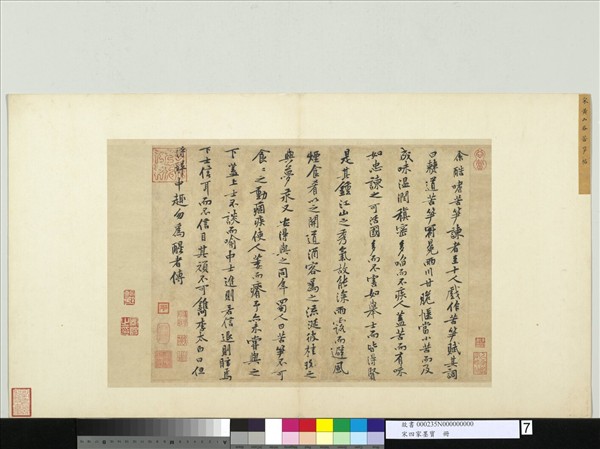 宋黃山谷苦筍賦
余酷嗜苦筍諫者至十人戲作苦筍賦其詞
曰僰道苦筍冠冕兩川甘脆愜當小苦而及
成味溫潤縝密多啗而不疾人蓋苦而有味
如忠諫之可活國多而不害如舉士而皆得賢
是其鍾江山之秀氣故能深雨露而避風
煙食肴以之開道酒客為之流涎彼桂玫之
與夢永又安得與之同年蜀人曰苦筍不可
食〻之動痼疾使人萎而瘠予亦未嘗與之
下蓋上士不談而喻中士進則若信退則眩焉
下士信耳而不信目其頑不可鐫李太白曰但
得醉中趣勿為醒者傳
故書 000235N000000000
宋四家墨寶 冊
7